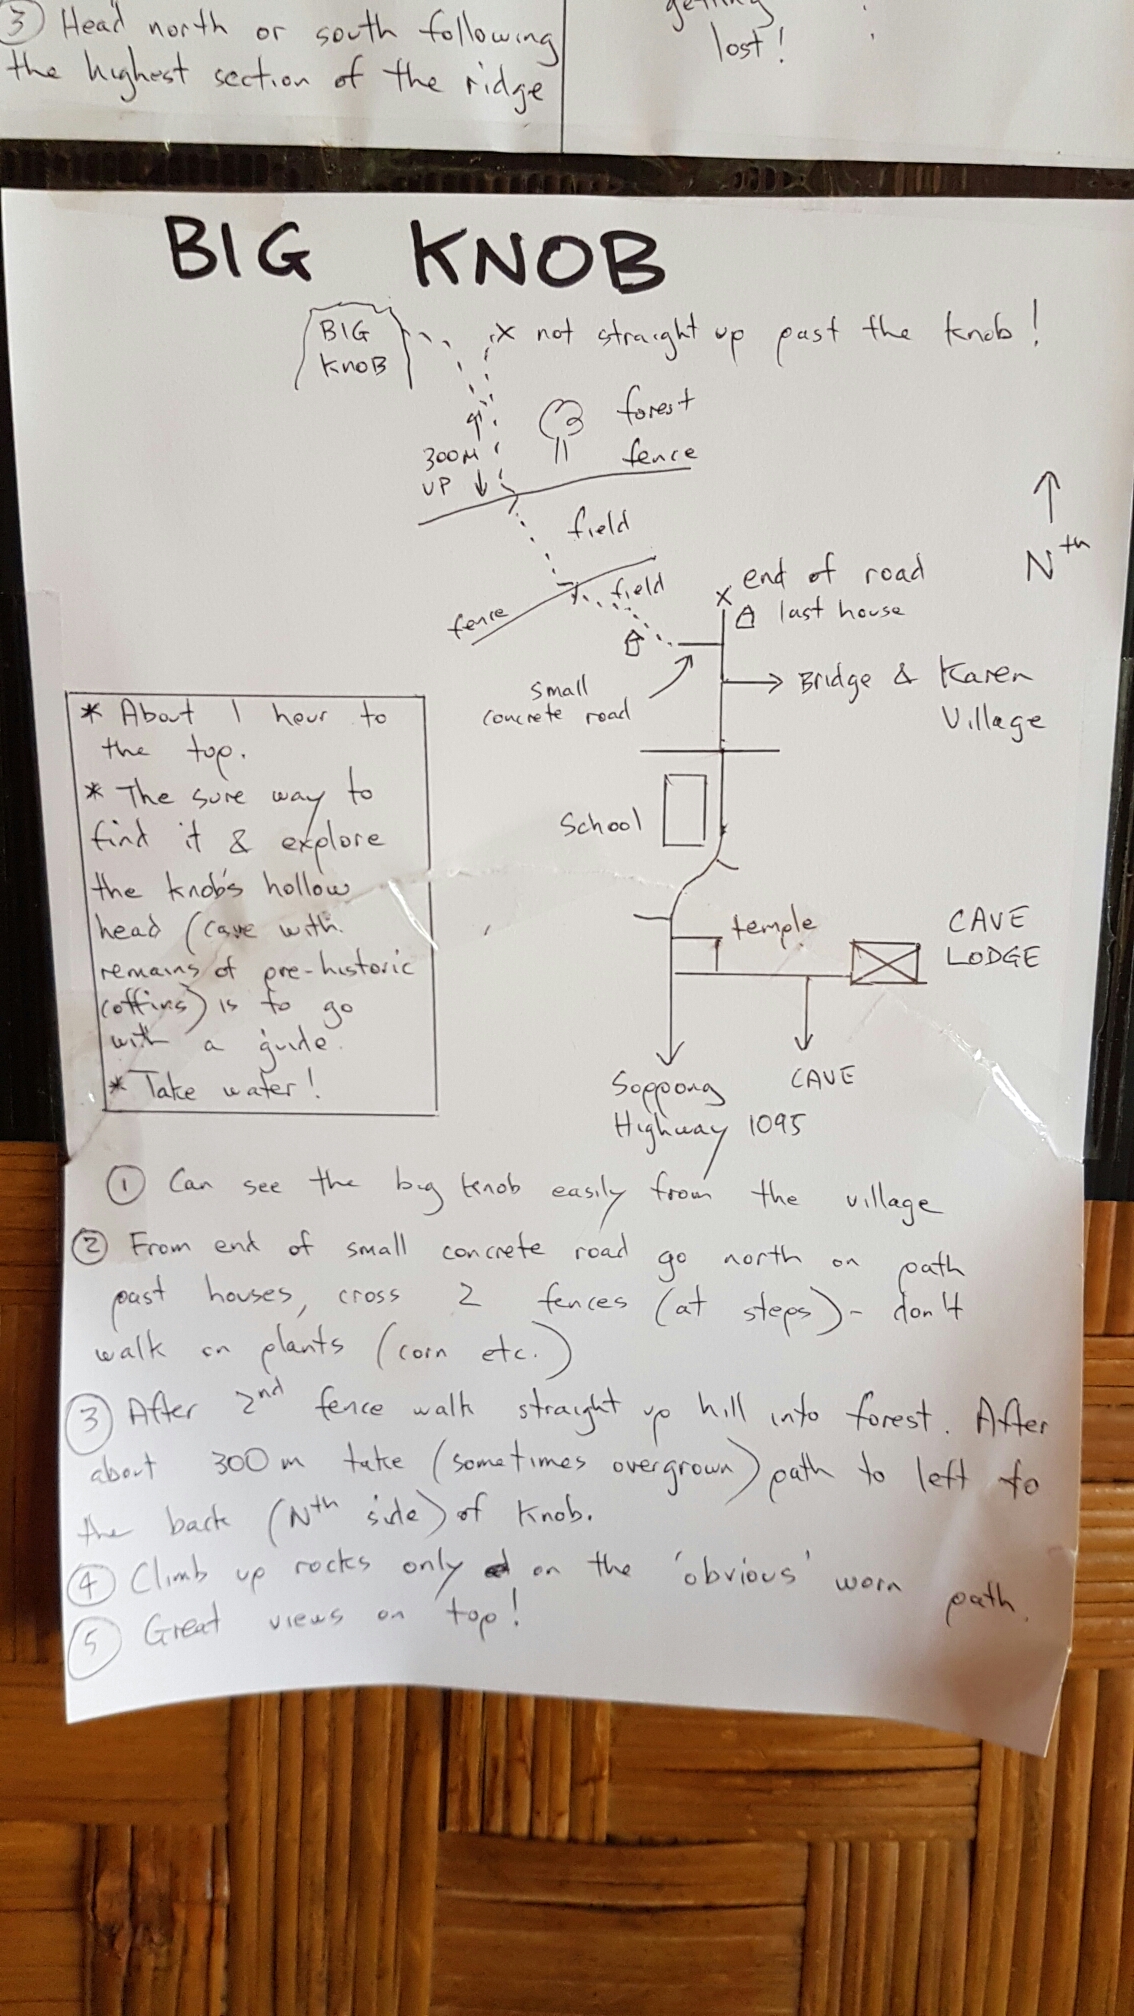 ③ Head north or south following
the highest section of the ridge
getting
lost!
BIG KNOB
BIG
KNOB
x not straight up past the knob!
forest
300M
UP
fence
field
field
fence
Nth
x end of road
last house
small
concrete road
Bridge & Karen
Village
School
temple
CAVE
LODGE
CAVE
Soppong
Highway 1095
* About 1 hour to
the top.
* The sure way to
find it & explore
the knob's hollow
head (cave with
remains of pre-historic
coffins) is to go
with a guide.
* Take water!
① Can see the big knob easily from the village
② From end of small concrete road go north on path
past houses, cross 2 fences (at steps) - don't
walk on plants (corn etc.)
③ After 2nd fence walk straight up hill into forest. After
about 300m take (sometimes overgrown) path to left to
the back (Nth side) of knob.
④ Climb up rocks only on the 'obvious' worn path.
⑤ Great views on top!